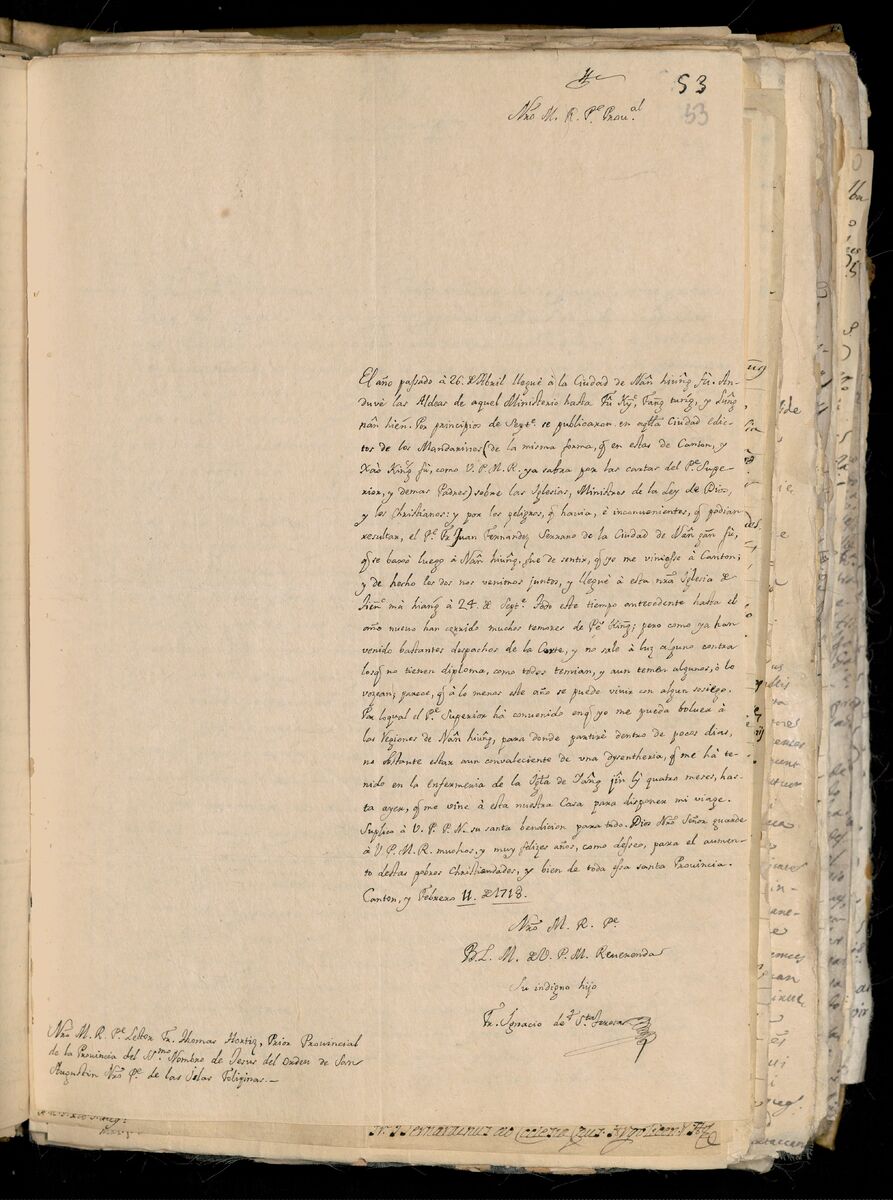 53
53
Nro M. R. Pe. Proual.
El año passado à 26. de Abril llegué à la Ciudad de Nân hiûng fù. An-
duve las Aldeas de aquel Ministerio hasta
nân hién. Por principios de Septe. se publicaron en aqlla Ciudad edic-
tos de los Mandarines (de la misma forma, q̃ en estas de Canton, y
Xáo Kíng fù, como V. P. M. R. ya sabra por las cartas del Pe. Supe-
rior, y demas Padres) sobre las Iglesias, Ministros de la Ley de Dios,
y los Christianos: y por los peligros, q̃ havia, è inconuenientes, q̃ podian
resultar, el Pe. Fr. Juan Fernandez Serrano de la Ciudad de Nân gān fù,
q̃ se baxó luego à Nân hiûng, fue de sentir, q̃ yo me viniesse à Canton;
y de hecho los dos nos venimos juntos, y llegué à esta nra Iglesia de
mà à 24. de Septe. Todo este tiempo antecedente hasta el
año nuevo han corrido muchos temores de Pe Kīng; pero como ya han
venido bastantes despachos de la Corte, y no salio à luz alguno contra
losq̃ no tienen diploma, como todos temian, y aun temen algunos, ò lo
vozean; parece, q̃ à lo menos este año se puede vivir con algun sosiego.
Por loqual el Pe. Superior há convenido enq̃ yo me pueda boluer à
las Regiones de Nân hiûng, para donde partiré dentro de pocos dias,
no obstante estar aun convaleciente de vna dysentheria, q̃ me há te-
nido en la enfermeria de la Igla de quatro meses, has-
ta ayer, q̃ me vine à esta nuestra Casa para disponer mi viage.
Suplico à V. P. P. N. su santa bendicion para todo. Dios Nro Señor guarde
à V. P. M. R. muchos, y muy felizes años, como desseo, para el aumen-
to destas pobres Christiandades, y bien de toda essa santa Provincia.
Canton, y Febrero 11. de 1718.
Nro M. R. Pe
B. L. M. de V. P. M. Reuerenda
Su indigno hijo
Fr. Ignacio de Sta Teresa
Nro M. R. Pe Lettor Fr. Thomas Hortiz, Prior Provincial
de la Provincia del Smo Nombre de Jesus del Orden de San
Augustin Nro Pe. de las Islas Filipinas.—